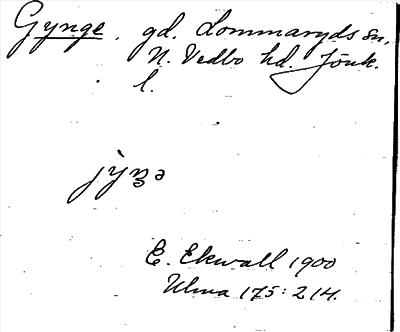 Gynge. gd. Lommaryds sn,
N. Vedbo hd. Jönk.
l.
jỳŋə
E. Ekwall 1900
Ulma 175:214.